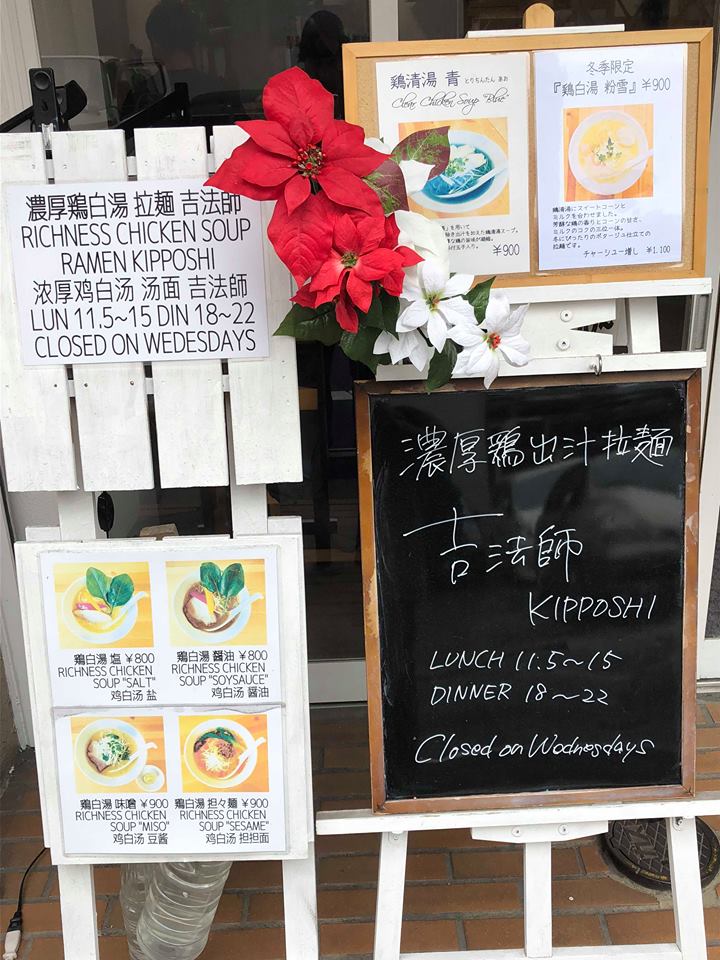 濃厚鶏白湯 拉麺 吉法師
RICHNESS CHICKEN SOUP
RAMEN KIPPOSHI
浓厚鸡白汤 汤面 吉法師
LUN 11.5~15 DIN 18~22
CLOSED ON WEDESDAYS
鶏清湯 青 とりちんたん あお
"Clear Chicken Soup Blue"
を用いて
¥900
冬季限定
『鶏白湯 粉雪』¥900
鶏清湯にスイートコーンと
ミルクを合わせました。
芳醇な鶏の香りとコーンの甘さ、
ミルクのコクの三位一体。
冬にぴったりのポタージュ仕立ての
拉麺です。
チャーシュー増し ¥1.100
鶏白湯 塩 ¥800
RICHNESS CHICKEN
SOUP "SALT"
鸡白汤 盐
鶏白湯 醤油 ¥800
RICHNESS CHICKEN
SOUP "SOYSAUCE"
鸡白汤 醤油
鶏白湯 味噌 ¥900
RICHNESS CHICKEN
SOUP "MISO"
鸡白汤 豆酱
鶏白湯 担々麺 ¥900
RICHNESS CHICKEN
SOUP "SESAME"
鸡白汤 担担面
濃厚鶏出汁拉麺
吉法師
KIPPOSHI
LUNCH 11.5~15
DINNER 18~22
Closed on Wednesdays